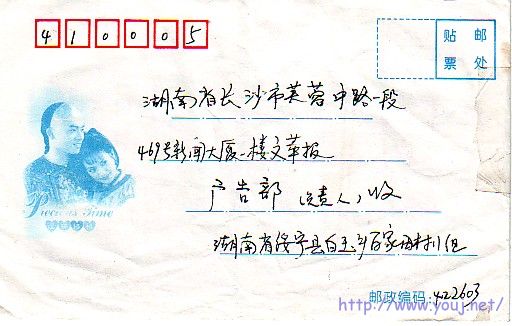 410005
贴 邮
票 处
湖南省长沙市芙蓉中路一段
469号新闻大厦一楼文萃报
广告部 负责人，收
Precious Time
湖南省绥宁县白玉乡百家村川组
邮政编码：422603
http://www.youj.net/